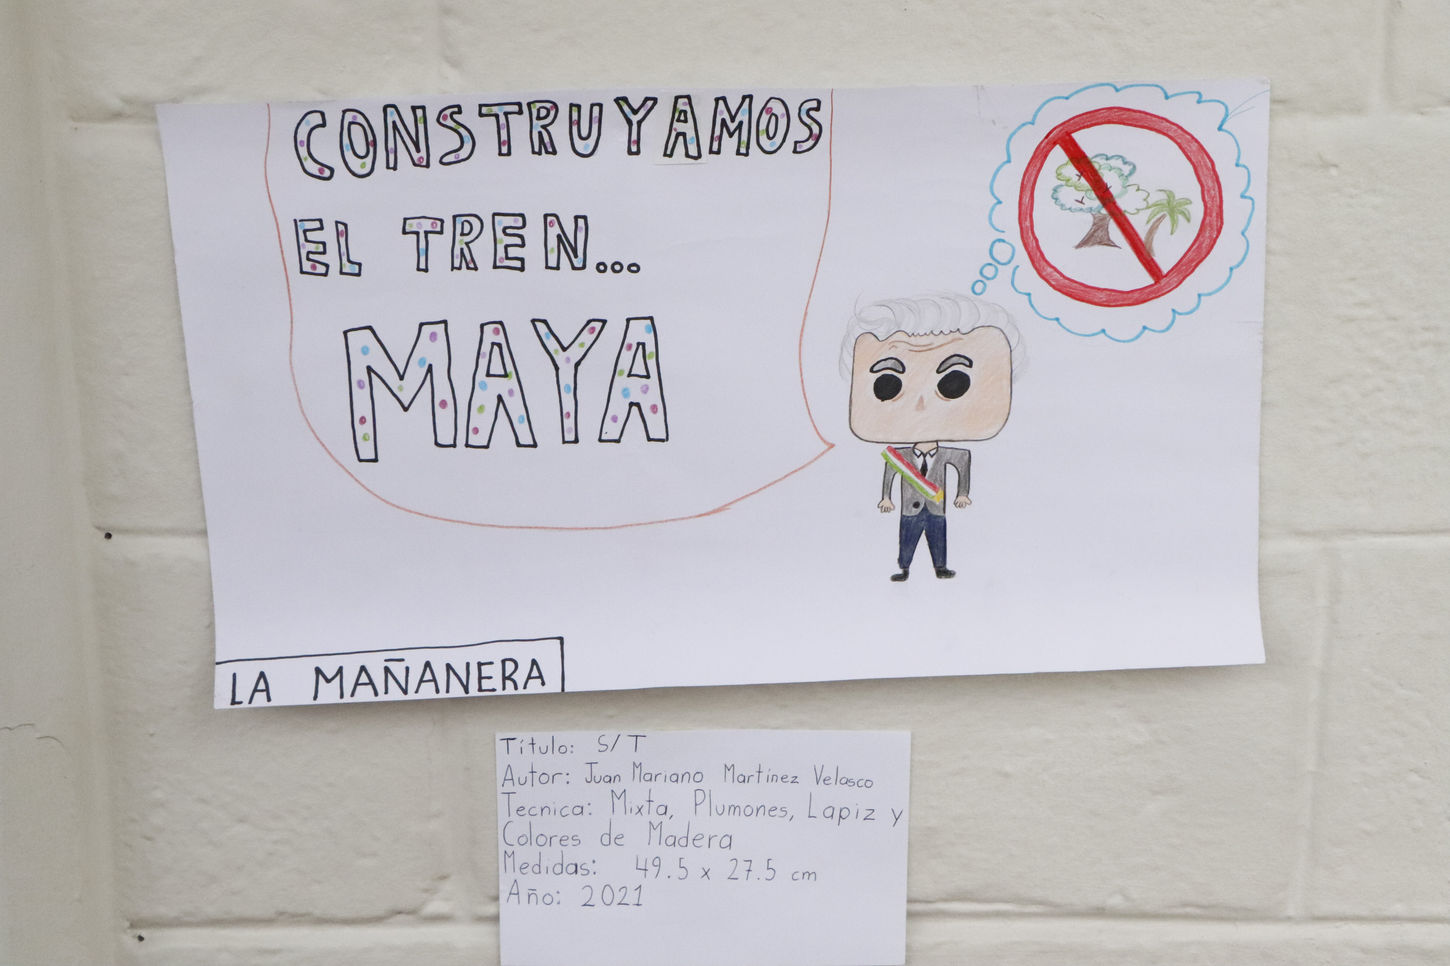 CONSTRUYAMOS
EL TREN...
MAYA
LA MAÑANERA
Título: S/T
Autor: Juan Mariano Martínez Velasco
Tecnica: Mixta, Plumones, Lapiz y
Colores de Madera
Medidas: 49.5 x 27.5 cm
Año: 2021